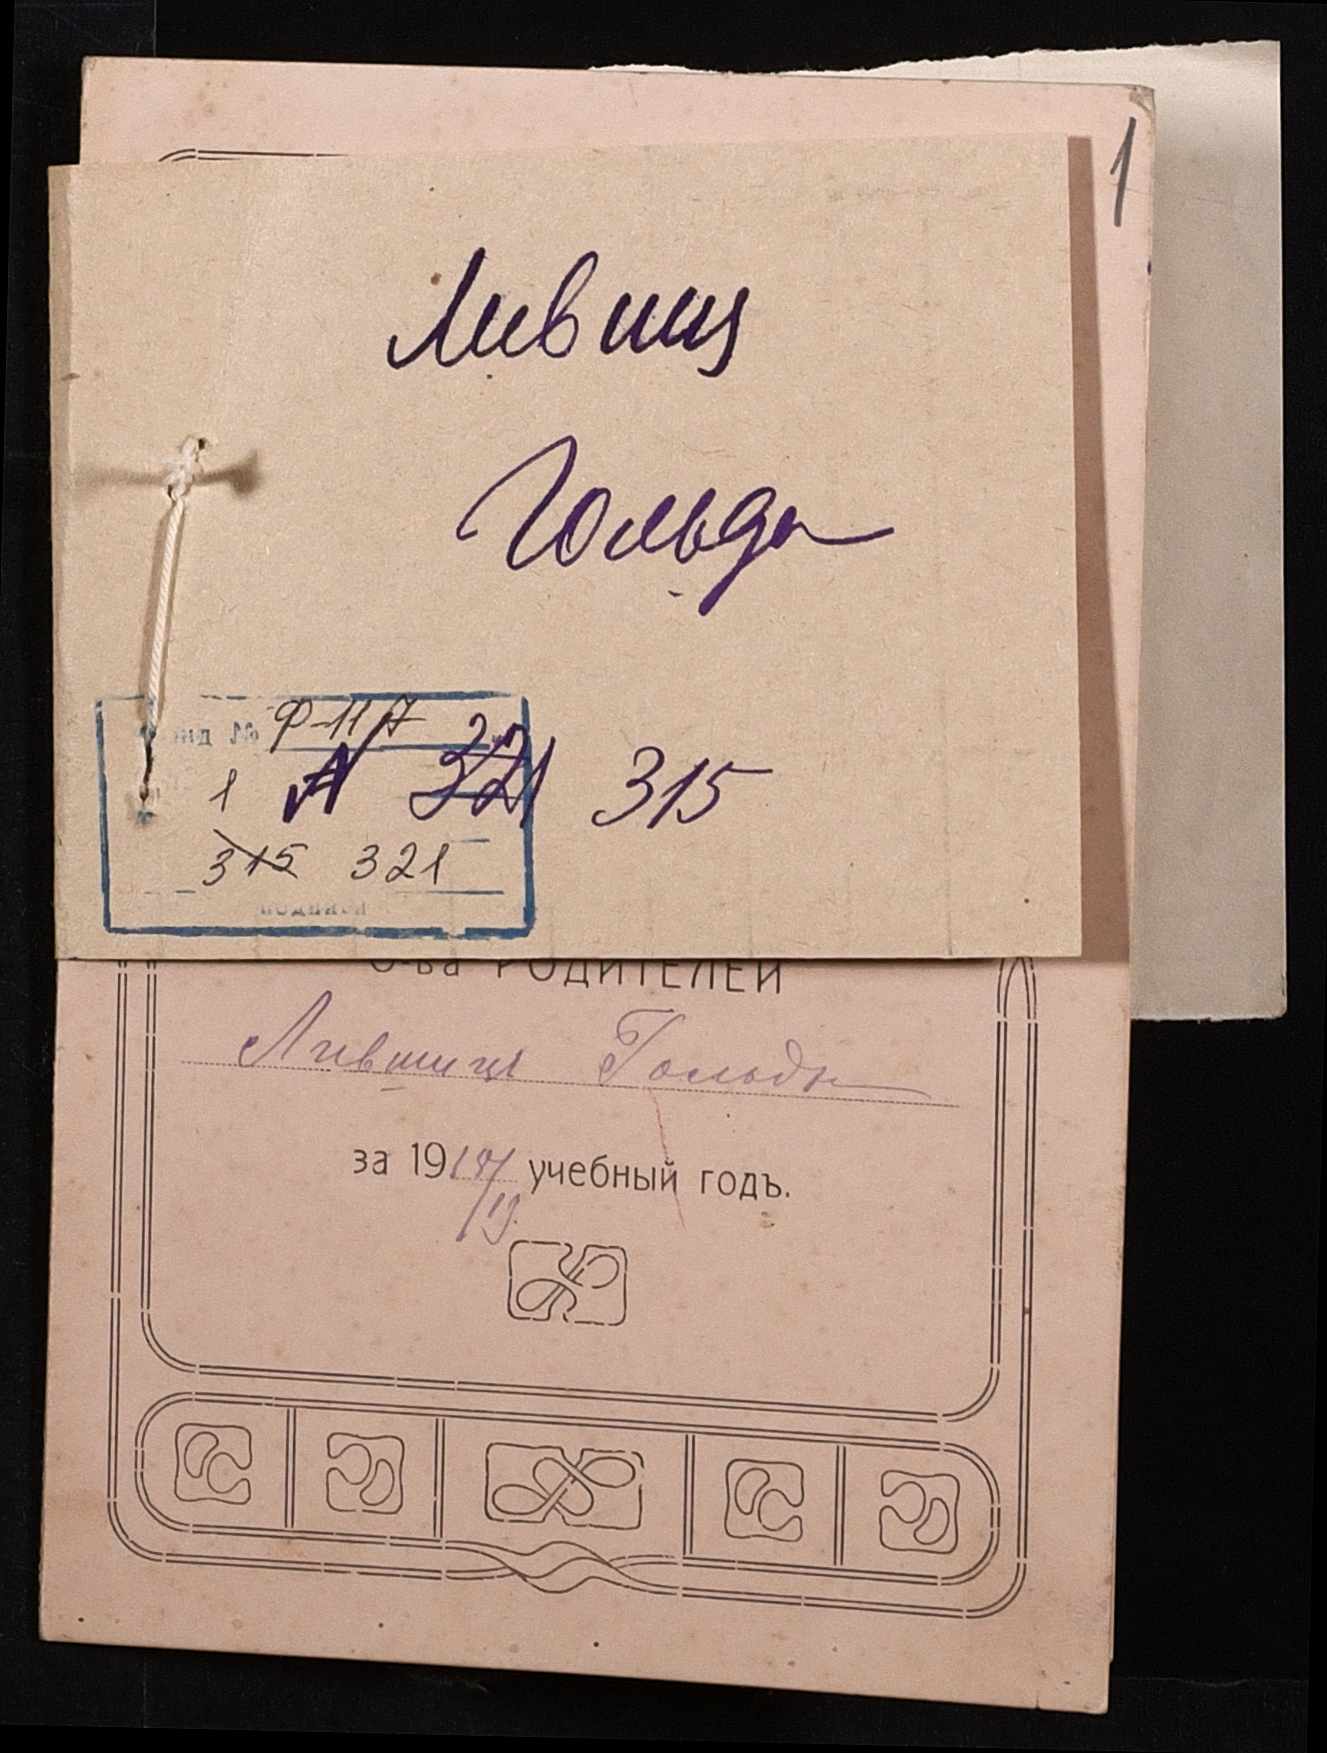 1
Лившиц
Гольда
Фонд № Ф-11А
1 А 321 315
315 321
О-ва РОДИТЕЛЕЙ
Лившицъ Гольды
за 1918/19 учебный годъ.